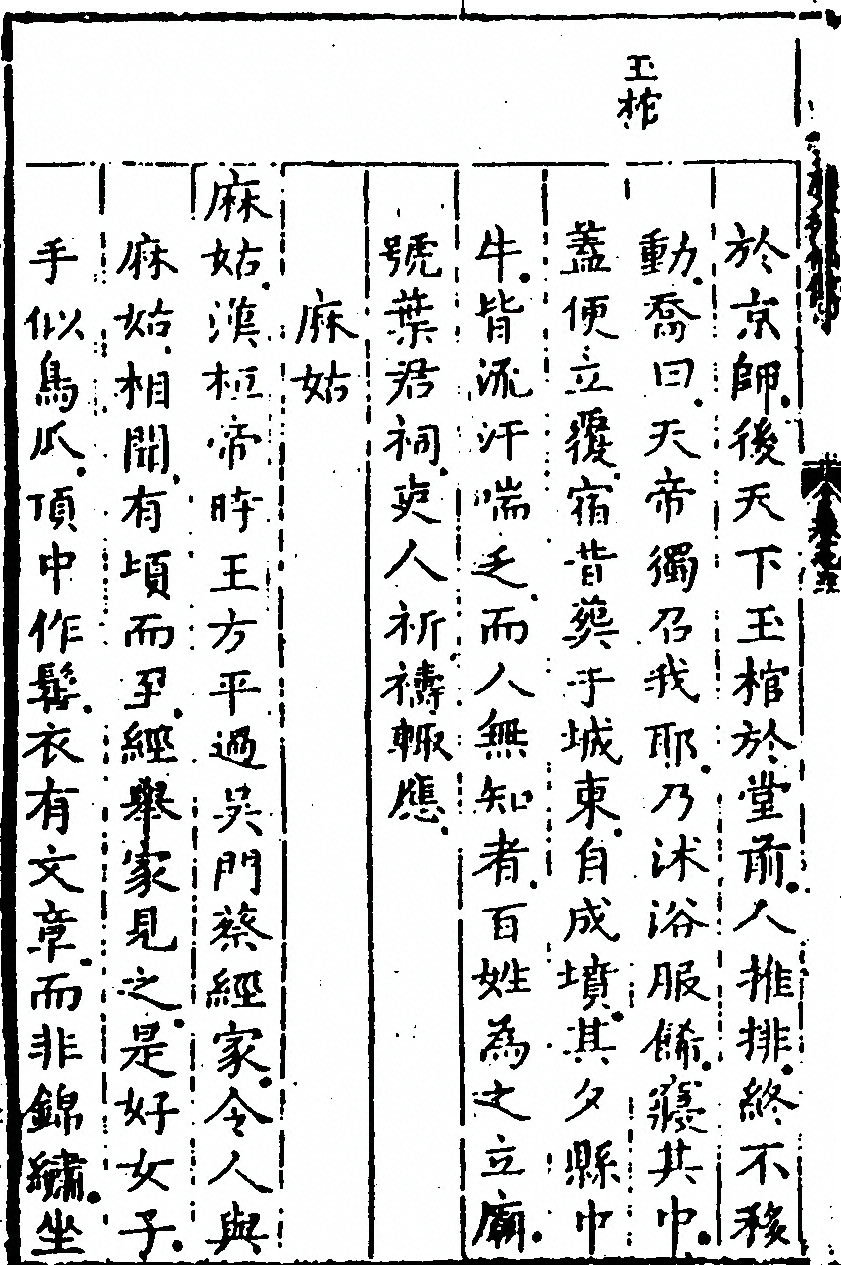 玉棺
於京師後天下玉棺於堂前人推排終不移
動喬曰天帝獨召我耶乃沐浴服餙寢其中
蓋便立覆宿昔葬于城東自成墳其夕縣中
牛皆流汗喘乏而人無知者百姓為之立廟
號葉君祠吏人祈禱輒應
麻姑
麻姑漢桓帝時王方平過吳門蔡經家令人與
麻姑相聞有頃而至經舉家見之是好女子
手似鳥爪頂中作髻衣有文章而非錦繡坐